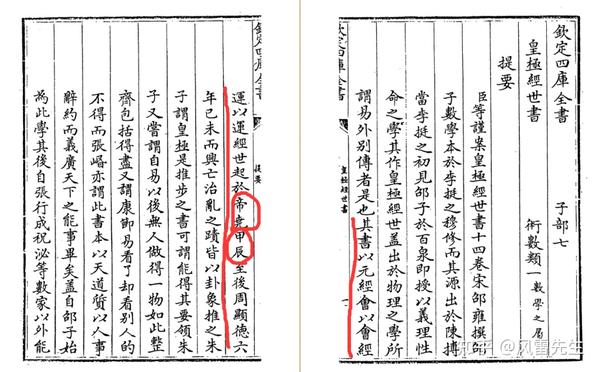 欽定四庫全書 子部七
皇極經世書 術數類一 數學之屬
提要
臣等謹案皇極經世書十四卷宋邵雍撰邵
子數學本於李挺之穆修而其源出於陳摶
當李挺之初見邵子於百泉即授以義理性
命之學其作皇極經世蓋出於物理之學所
謂易外別傳者是也其書以元經會以會經
欽定四庫全書 皇極經世書 一
欽定四庫全書 提要
運以運經世起於帝堯甲辰至後周顯德六
年己未而興亡治亂之蹟皆以卦象推之朱
子謂皇極是推步之書可謂能得其要領朱
子又嘗謂自易以後無人做得一物如此整
齊包括得盡又謂康節易看了却看別人的
不得而張亦謂此書本以天道質以人事
辭約而義廣天下之能事畢矣蓋自邵子始
為此學其後自張行成祝泌等數家以外能
知乎 @风雷先生